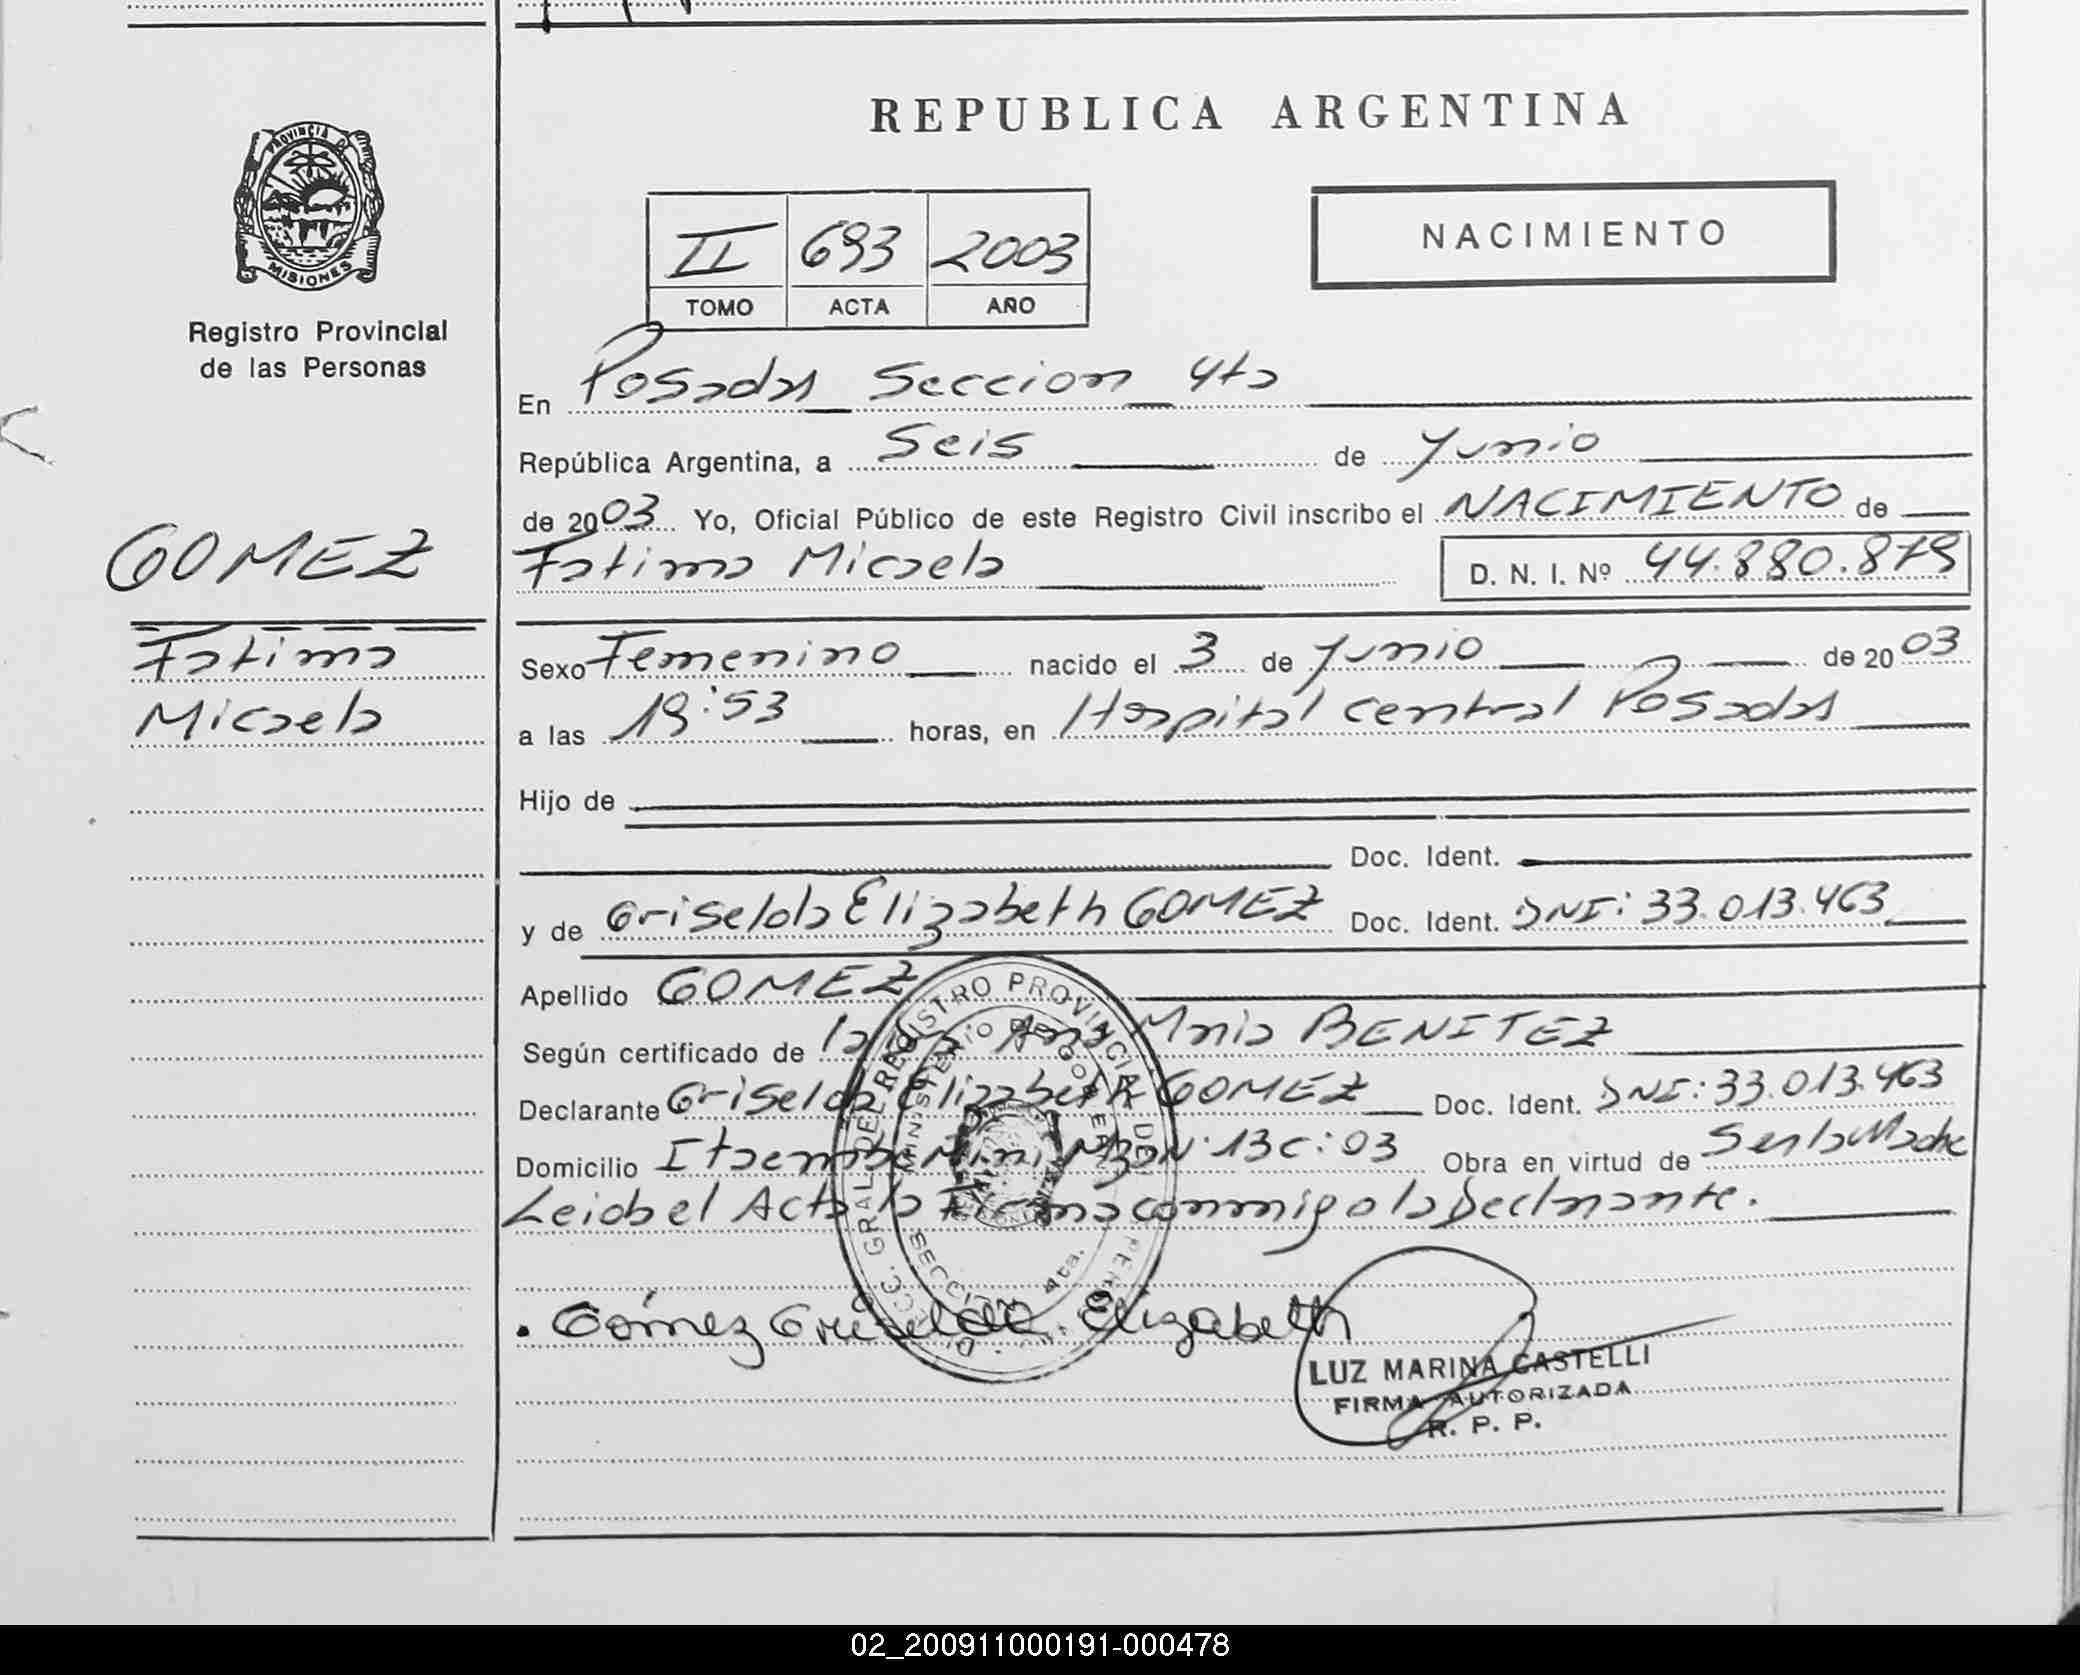 REPUBLICA ARGENTINA
PROVINCIA DE
MISIONES
Registro Provincial
de las Personas
II 693 2003
TOMO ACTA AÑO
NACIMIENTO
En Posadas Seccion 4ta
República Argentina, a Seis de Junio
de 2003 Yo, Oficial Público de este Registro Civil inscribo el NACIMIENTO de
GOMEZ
Fatima Micaela D. N. I. Nº 44.880.879
Fatima
Micaela
Sexo Femenino nacido el 3 de Junio de 2003
a las 19:53 horas, en Hospital central Posadas
Hijo de
Doc. Ident.
y de Griselda Elizabeth GOMEZ Doc. Ident. DNI: 33.013.463
Apellido GOMEZ
Según certificado de la Ana Maria BENITEZ
Declarante Griselda Elizabeth GOMEZ Doc. Ident. DNI: 33.013.463
Domicilio Itaembe Mini Mzan: 13 C: 03 Obra en virtud de Ser la Madre
Leida el Acta la Firma conmigo la Declarante.
REGISTRO PROVINCIAL DE
MINISTERIO DE GOBIERNO
SECCION 4ta.
Gómez Griselda Elizabeth
LUZ MARINA CASTELLI
FIRMA AUTORIZADA
R. P. P.
02_200911000191-000478